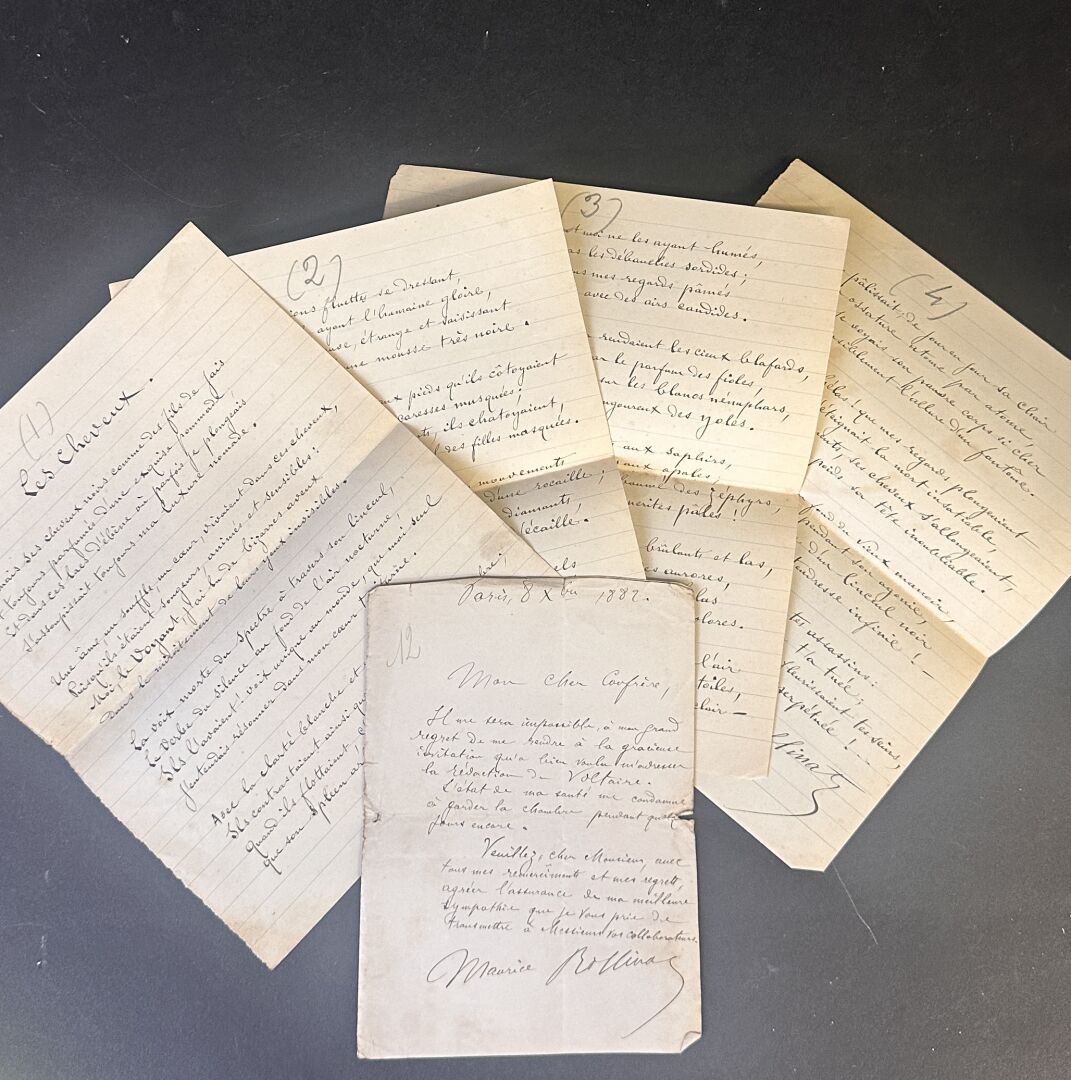 (1)
Les Cheveux.
mais ses cheveux moirés comme des fils de jais
et toujours parfumés d'une exquise pommade,
Et dans ces lacs d'ébène où parfois je plongeais
S'assoupissait toujours ma luxure nomade.
Une âme, un souffle, un cœur, vivaient dans ces cheveux,
Puisqu'ils étaient songeurs, animés et sensibles:
Moi, le Voyant, j'ai lu de bizarres aveux
dans le miroitement de leurs yeux invisibles.
La voix morte du Spectre à travers son linceul,
Le Verbe du Silence au fond de l'air nocturne,
Ils l'avaient: voix unique au monde, que moi seul
J'entendais résonner dans mon cœur
Avec la clarté blanche et
Ils contrastaient ainsi que
Quand ils flottaient,
que son Spleen
(2)
fluettes se dressant,
ayant l'humaine gloire,
étrange et saisissant
mousse très noire.
pieds qu'ils côtoyaient
caresses musquées;
ils chatoyaient,
des filles masquées.
mouvements
d'une rocaille;
diamants,
d'écaille.
(3)
ne les ayant humés,
les débauches sordides;
mes regards pâmés
avec des airs candides.
rendaient les cieux blafards,
le parfum des fioles,
sur les blancs nénuphars,
des yoles.
aux saphirs,
aux opales,
des Zéphyrs,
pâles!
brûlants et las,
aurores,
l'air
(4)
pâlissait, de jour en jour sa chair
ossature atome par atome,
voyais son pauvre corps si cher
insensiblement l'allure d'un fantôme.
que mes regards plongeaient
la mort insatiable,
ses cheveux s'allongeaient,
sa tête inoubliable.
fond du vieux manoir,
pendant son agonie,
un linceul noir
infinie!
assassins:
l'a tuée,
fleurissent tes seins,
perpétuée!
Paris, 8 Xbre 1882.
12
Mon cher Confrère,
Il me sera impossible, à mon grand
regret de me rendre à la gracieuse
invitation qu'a bien voulu m'adresser
la rédaction du Voltaire.
L'état de ma santé me condamne
à garder la chambre pendant quelques
jours encore.
Veuillez, cher Monsieur, avec
tous mes remerciments et mes regrets,
agréer l'assurance de ma meilleure
sympathie que je vous prie de
transmettre à Messieurs vos collaborateurs.
Maurice Rollinat